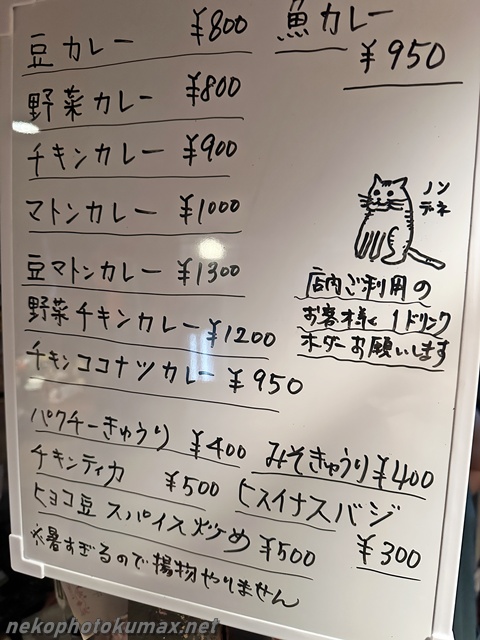 豆カレー ¥800
野菜カレー ¥800
チキンカレー ¥900
マトンカレー ¥1000
豆マトンカレー ¥1300
野菜チキンカレー ¥1200
チキンココナツカレー ¥950
魚カレー
¥950
ノン
デネ
店内ご利用の
お客様く 1ドリンク
オーダーお願いします
パクチーきゅうり ¥400
みそきゅうり ¥400
チキンティカ ¥500
ヒスイナスバジ
¥300
ヒヨコ豆スパイス炒め ¥500
※暑すぎるので揚物やりません
nekophotokumax.net